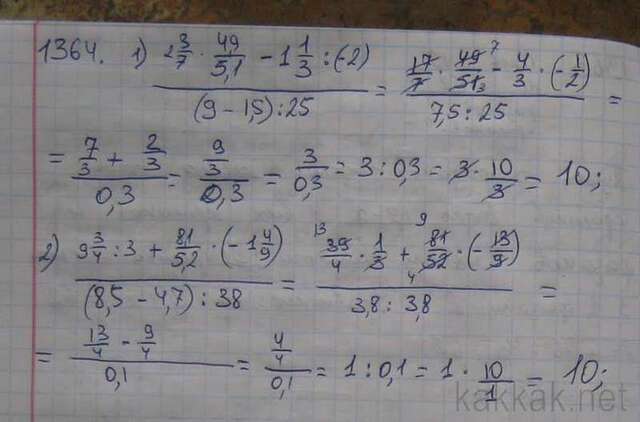 1364. 1) (2 3/7 · 4,9/5,1 − 1 1/3 : (−2)) / ((9 − 1,5) : 25) = (17/7 · 49/51 − 4/3 · (−1/2)) / (7,5 : 25) =
= (7/3 + 2/3) / 0,3 = (9/3) / 0,3 = 3/0,3 = 3 : 0,3 = 3 · 10/3 = 10;
2) (9 3/4 : 3 + 8,1/5,2 · (−1 4/9)) / ((8,5 − 4,7) : 38) = (39/4 · 1/3 + 81/52 · (−13/9)) / (3,8 : 3,8) =
= (13/4 − 9/4) / 0,1 = (4/4) / 0,1 = 1 : 0,1 = 1 · 10/1 = 10;
kakkak.net